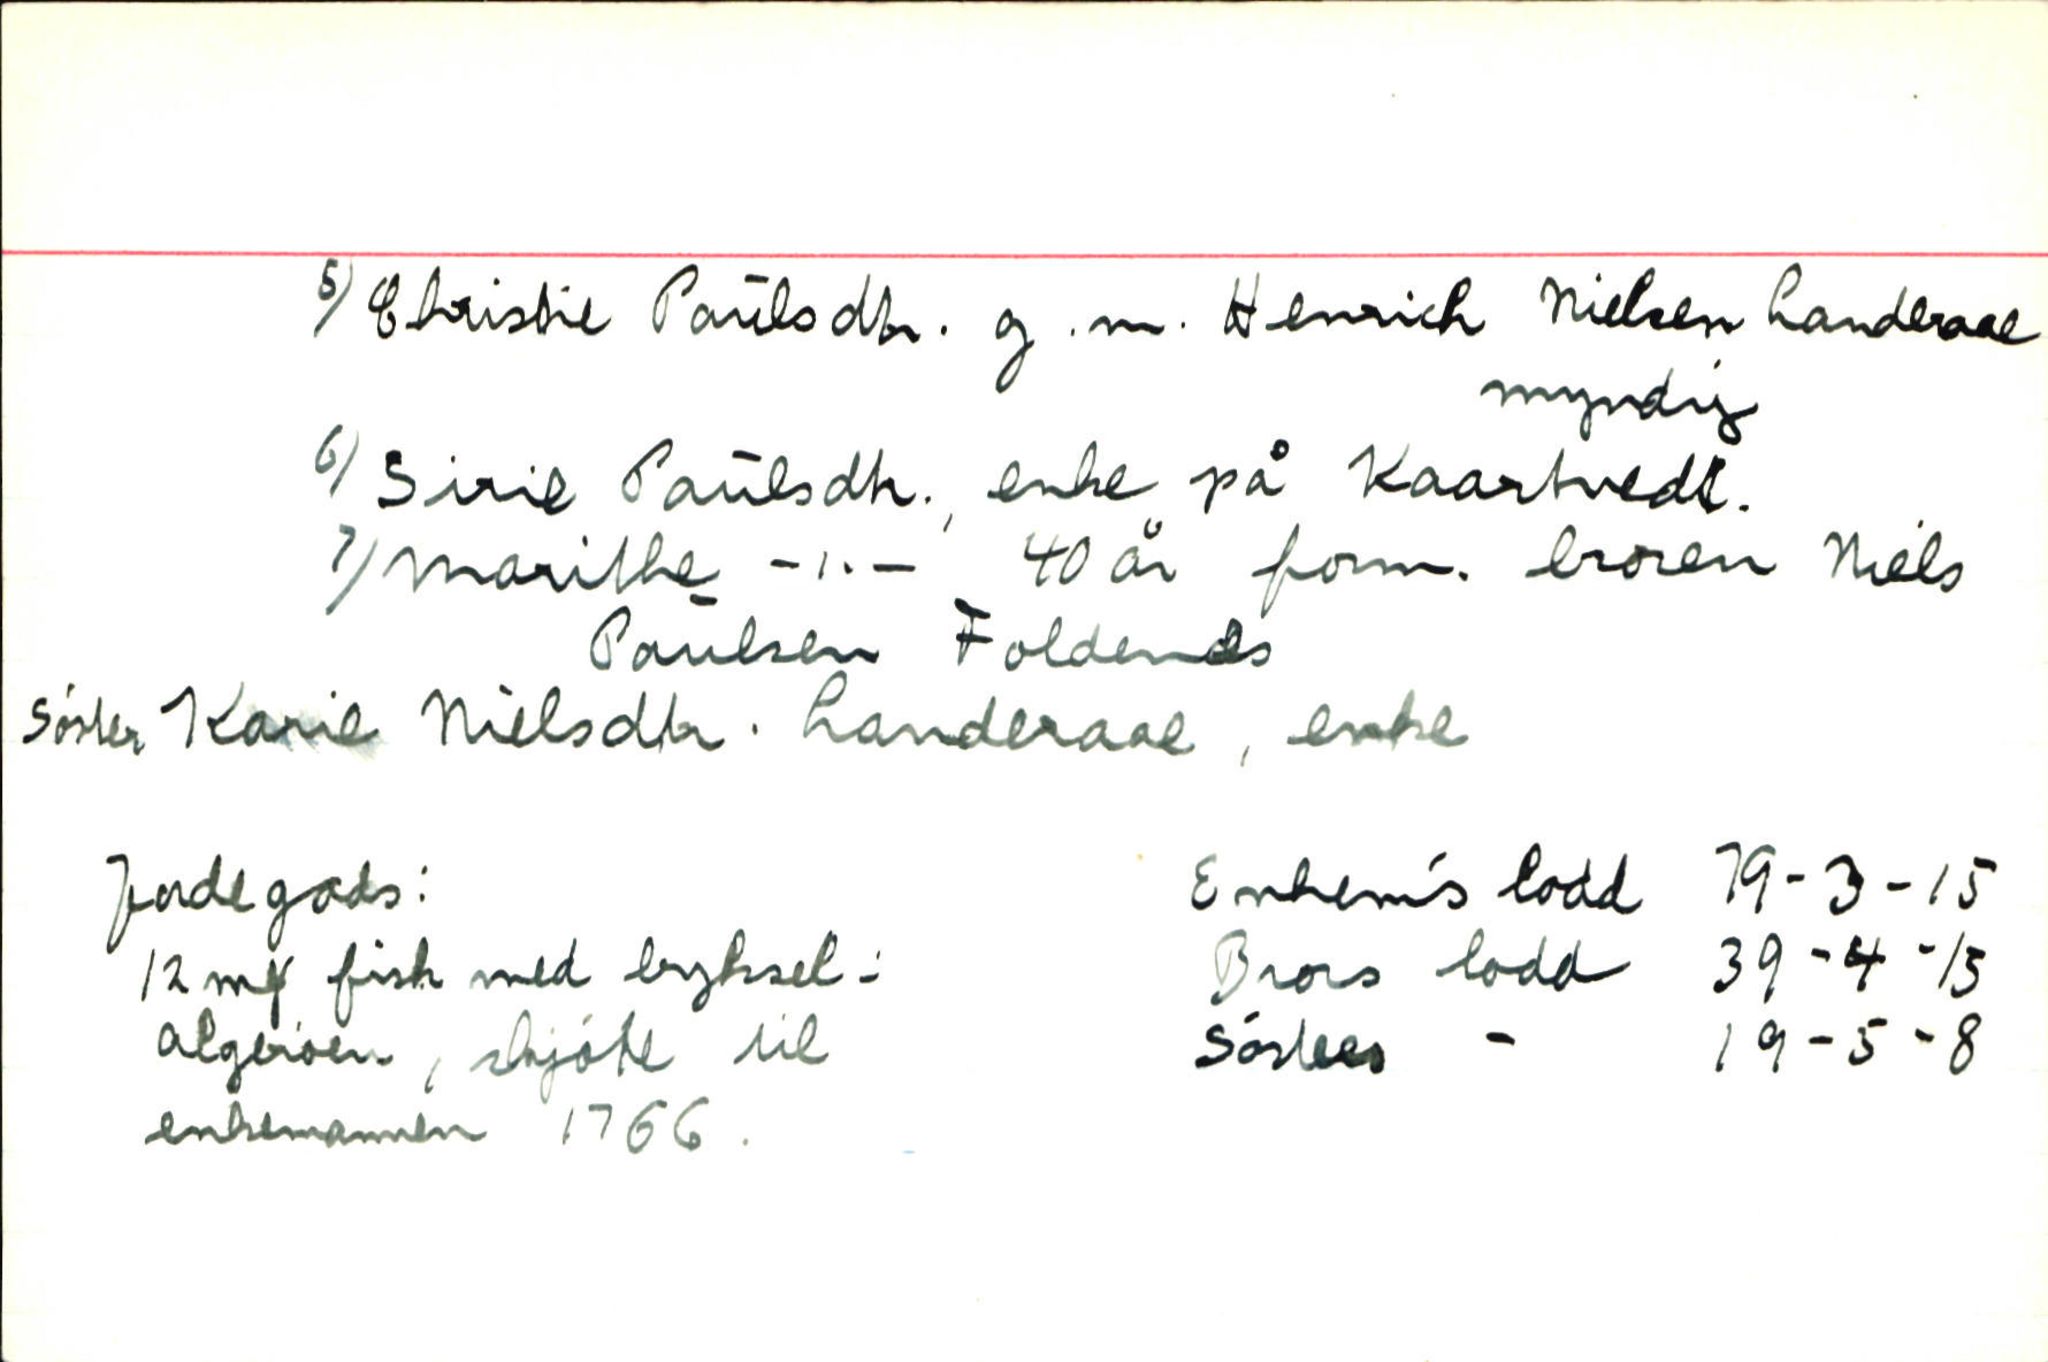 5) Christie Paulsdtr. g.m. Henrich Nielsen Landeraae
myndig
6) Sirie Paulsdtr., enke på Kaartvedt.
7) Marithe -"- 40 år form. broren Niels
Paulsen Foldenes
Søster Karie Nielsdtr. Landeraae, enke
Jordegods:
12 mk fisk med bryksel i
Algerøen, skjøte til
enkemannen 1766.
Enkem's lodd 79-3-15
Brors lodd 39-4-15
Søsters - 19-5-8